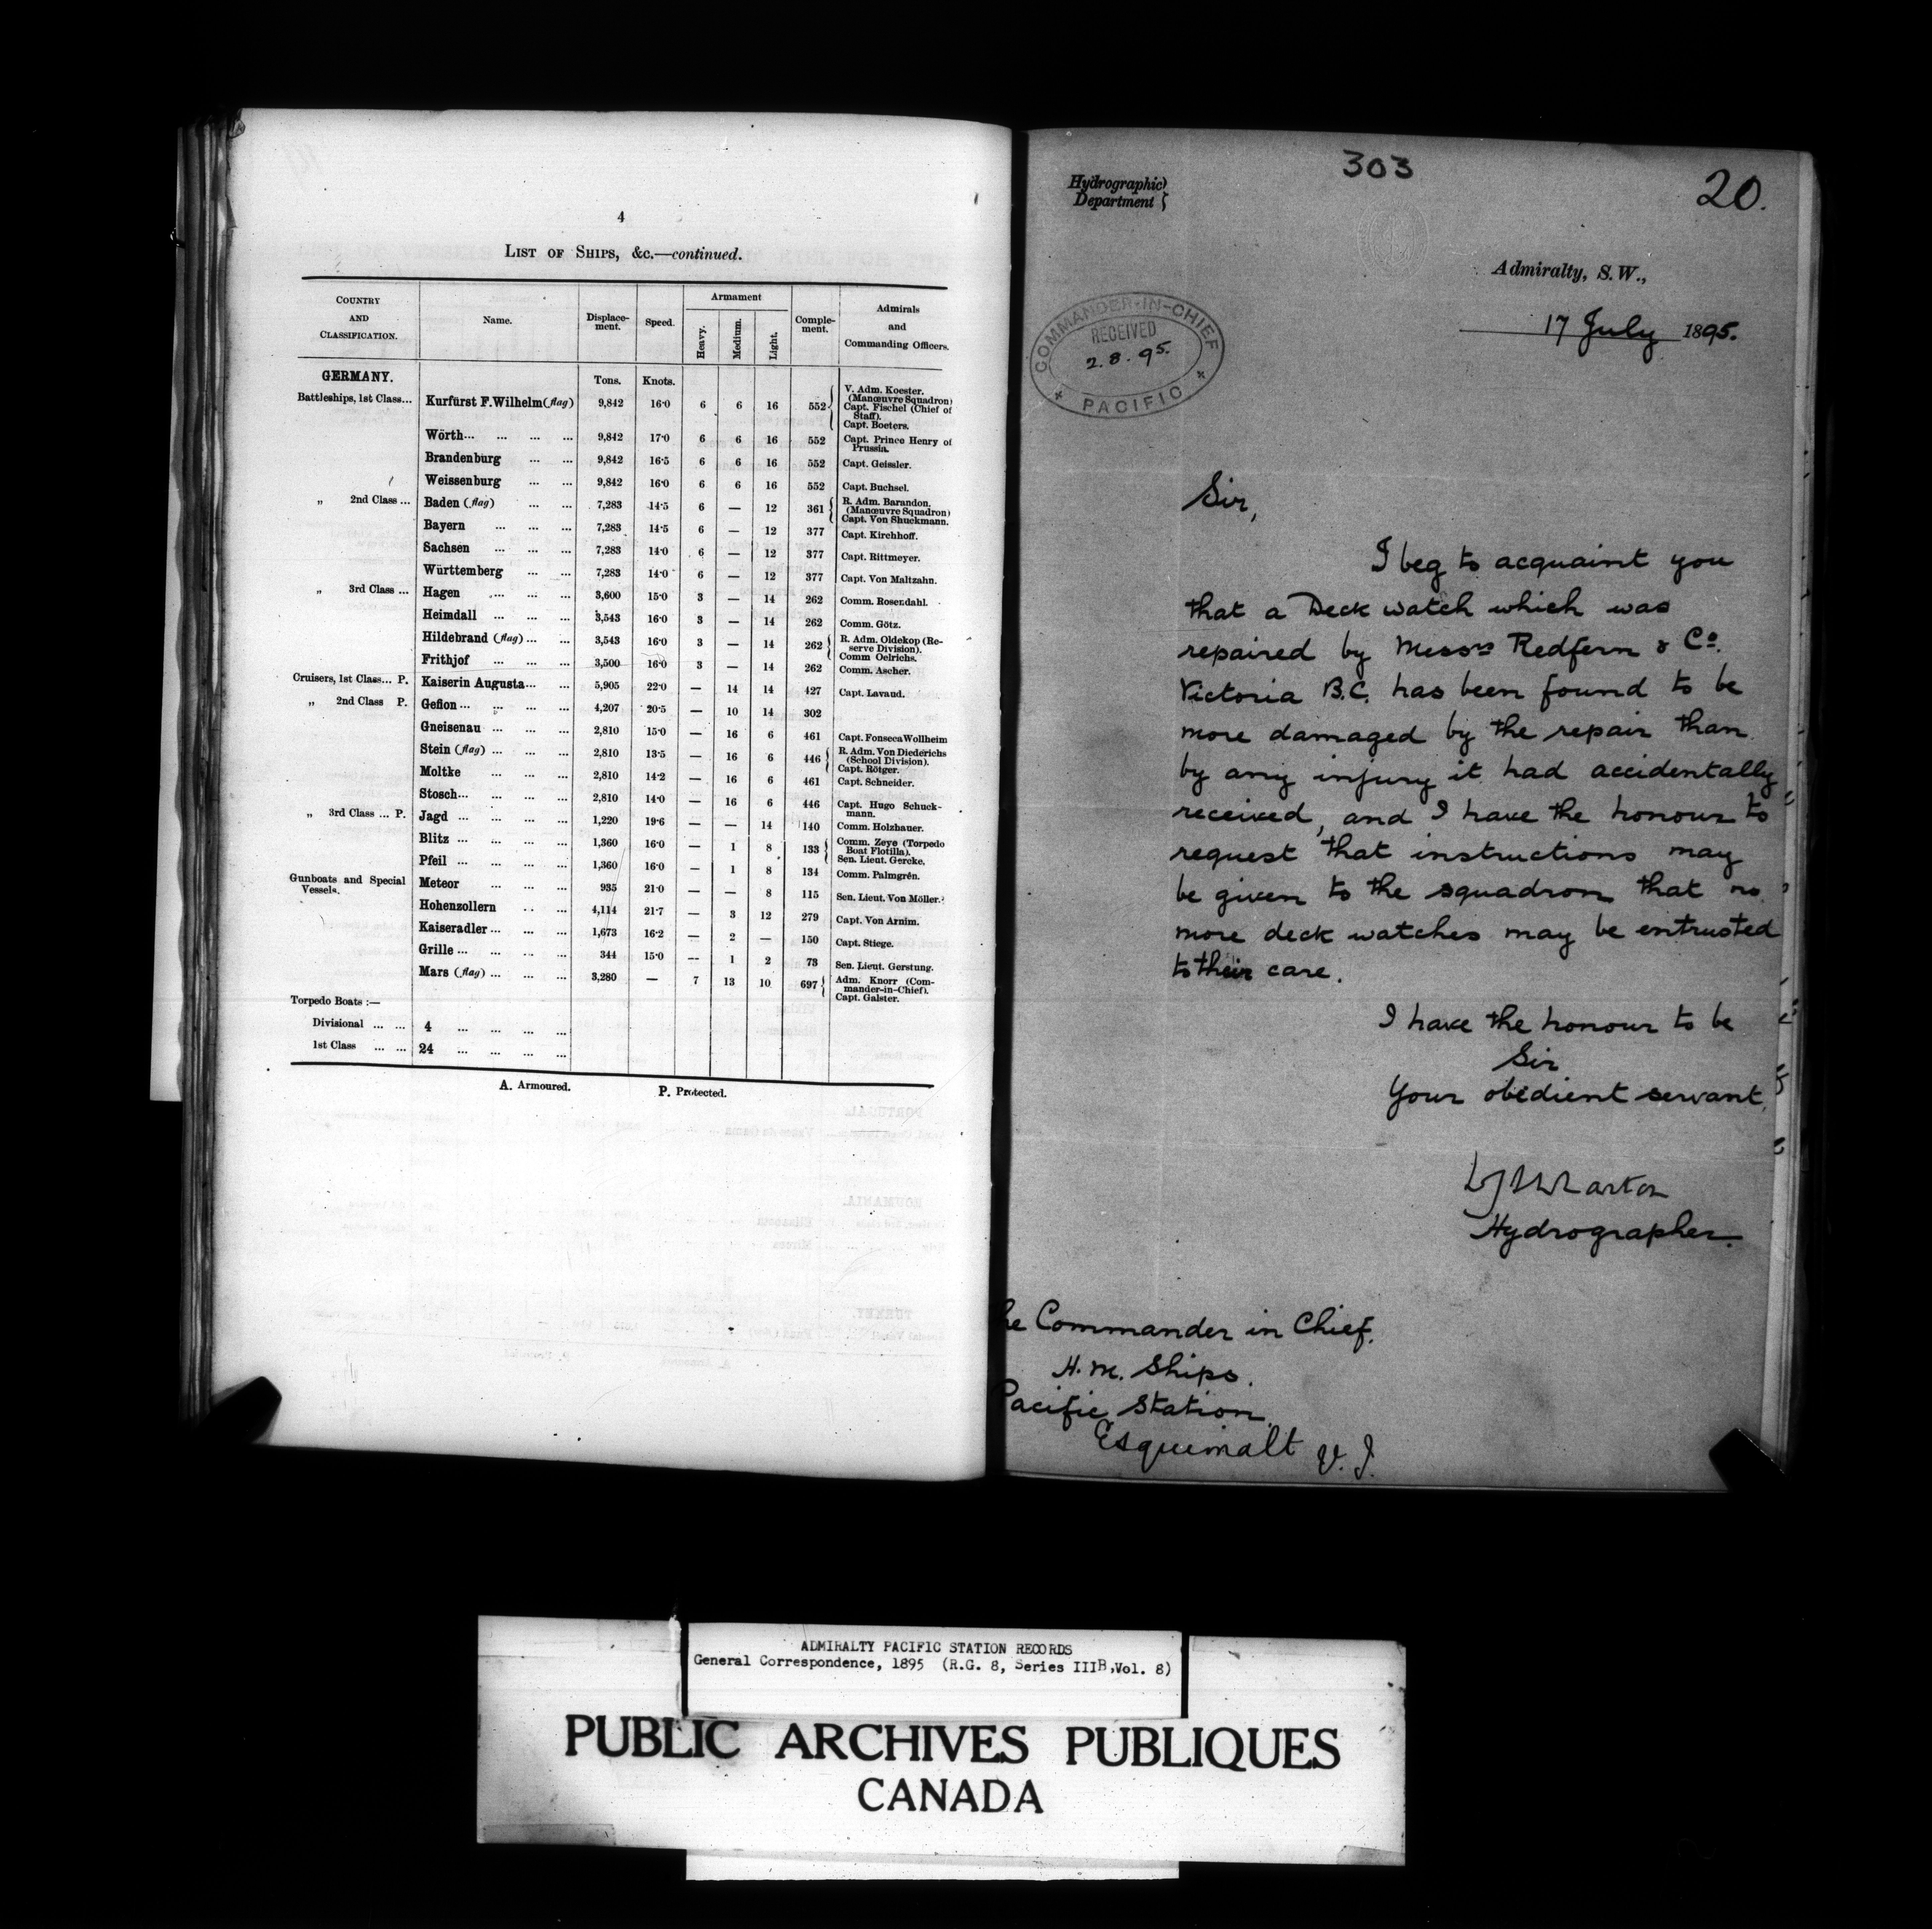 4
LIST OF SHIPS, &c.—continued.
COUNTRY AND CLASSIFICATION. Name. Displace-ment. Speed. Armament Heavy. Medium. Light. Comple-ment. Admirals and Commanding Officers.
GERMANY. Tons. Knots.
Battleships, 1st Class... Kurfürst F.Wilhelm (flag) 9,842 16·0 6 6 16 552 V. Adm. Koester. (Manœuvre Squadron) Capt. Fischel (Chief of Staff). Capt. Boeters.
Wörth... ... ... ... 9,842 17·0 6 6 16 552 Capt. Prince Henry of Prussia.
Brandenburg ... ... 9,842 16·5 6 6 16 552 Capt. Geissler.
Weissenburg ... ... 9,842 16·0 6 6 16 552 Capt. Buchsel.
„ 2nd Class ... Baden (flag) ... ... 7,283 14·5 6 — 12 361 R. Adm. Barandon. (Manœuvre Squadron) Capt. Von Shuckmann.
Bayern ... ... ... 7,283 14·5 6 — 12 377 Capt. Kirchhoff.
Sachsen ... ... ... 7,283 14·0 6 — 12 377 Capt. Rittmeyer.
Württemberg ... ... 7,283 14·0 6 — 12 377 Capt. Von Maltzahn.
„ 3rd Class ... Hagen ... ... ... 3,600 15·0 3 — 14 262 Comm. Rosendahl.
Heimdall ... ... ... 3,543 16·0 3 — 14 262 Comm. Götz.
Hildebrand (flag) ... ... 3,543 16·0 3 — 14 262 R. Adm. Oldekop (Re-serve Division). Comm Oelrichs.
Frithjof ... ... ... 3,500 16·0 3 — 14 262 Comm. Ascher.
Cruisers, 1st Class... P. Kaiserin Augusta... ... 5,905 22·0 — 14 14 427 Capt. Lavaud.
„ 2nd Class P. Gefion ... ... ... ... 4,207 20·5 — 10 14 302
Gneisenau ... ... ... 2,810 15·0 — 16 6 461 Capt. Fonseca Wollheim
Stein (flag) ... ... ... 2,810 13·5 — 16 6 446 R. Adm. Von Diederichs (School Division). Capt. Rötger.
Moltke ... ... ... 2,810 14·2 — 16 6 461 Capt. Schneider.
Stosch... ... ... ... 2,810 14·0 — 16 6 446 Capt. Hugo Schuck-mann.
„ 3rd Class ... P. Jagd ... ... ... ... 1,220 19·6 — — 14 140 Comm. Holzhauer.
Blitz ... ... ... ... 1,360 16·0 — 1 8 133 Comm. Zeye (Torpedo Boat Flotilla). Sen. Lieut. Gercke.
Pfeil ... ... ... ... 1,360 16·0 — 1 8 134 Comm. Palmgrén.
Gunboats and Special Vessels. Meteor ... ... ... 935 21·0 — — 8 115 Sen. Lieut. Von Möller.
Hohenzollern ... ... 4,114 21·7 — 3 12 279 Capt. Von Arnim.
Kaiseradler ... ... ... 1,673 16·2 — 2 — 150 Capt. Stiege.
Grille ... ... ... ... 344 15·0 — 1 2 73 Sen. Lieut. Gerstung.
Mars (flag) ... ... ... 3,280 — 7 13 10 697 Adm. Knorr (Com-mander-in-Chief). Capt. Galster.
Torpedo Boats :—
Divisional ... ... 4 ... ... ... ...
1st Class ... ... 24 ... ... ... ...
A. Armoured. P. Protected.
303
20.
Hydrographic
Department
Admiralty, S.W.,
17 July 1895.
COMMANDER-IN-CHIEF
RECEIVED
2.8.95.
PACIFIC
Sir,
I beg to acquaint you
that a Deck watch which was
repaired by Messrs Redfern & Co.
Victoria B.C. has been found to be
more damaged by the repair than
by any injury it had accidentally
received, and I have the honour to
request that instructions may
be given to the squadron that no
more deck watches may be entrusted
to their care.
I have the honour to be
Sir
Your obedient servant,
WJWharton
Hydrographer.
he Commander in Chief.
H.M. Ships.
Pacific Station.
Esquimalt V.I.
ADMIRALTY PACIFIC STATION RECORDS
General Correspondence, 1895 (R.G. 8, Series IIIB, Vol. 8)
PUBLIC ARCHIVES PUBLIQUES
CANADA